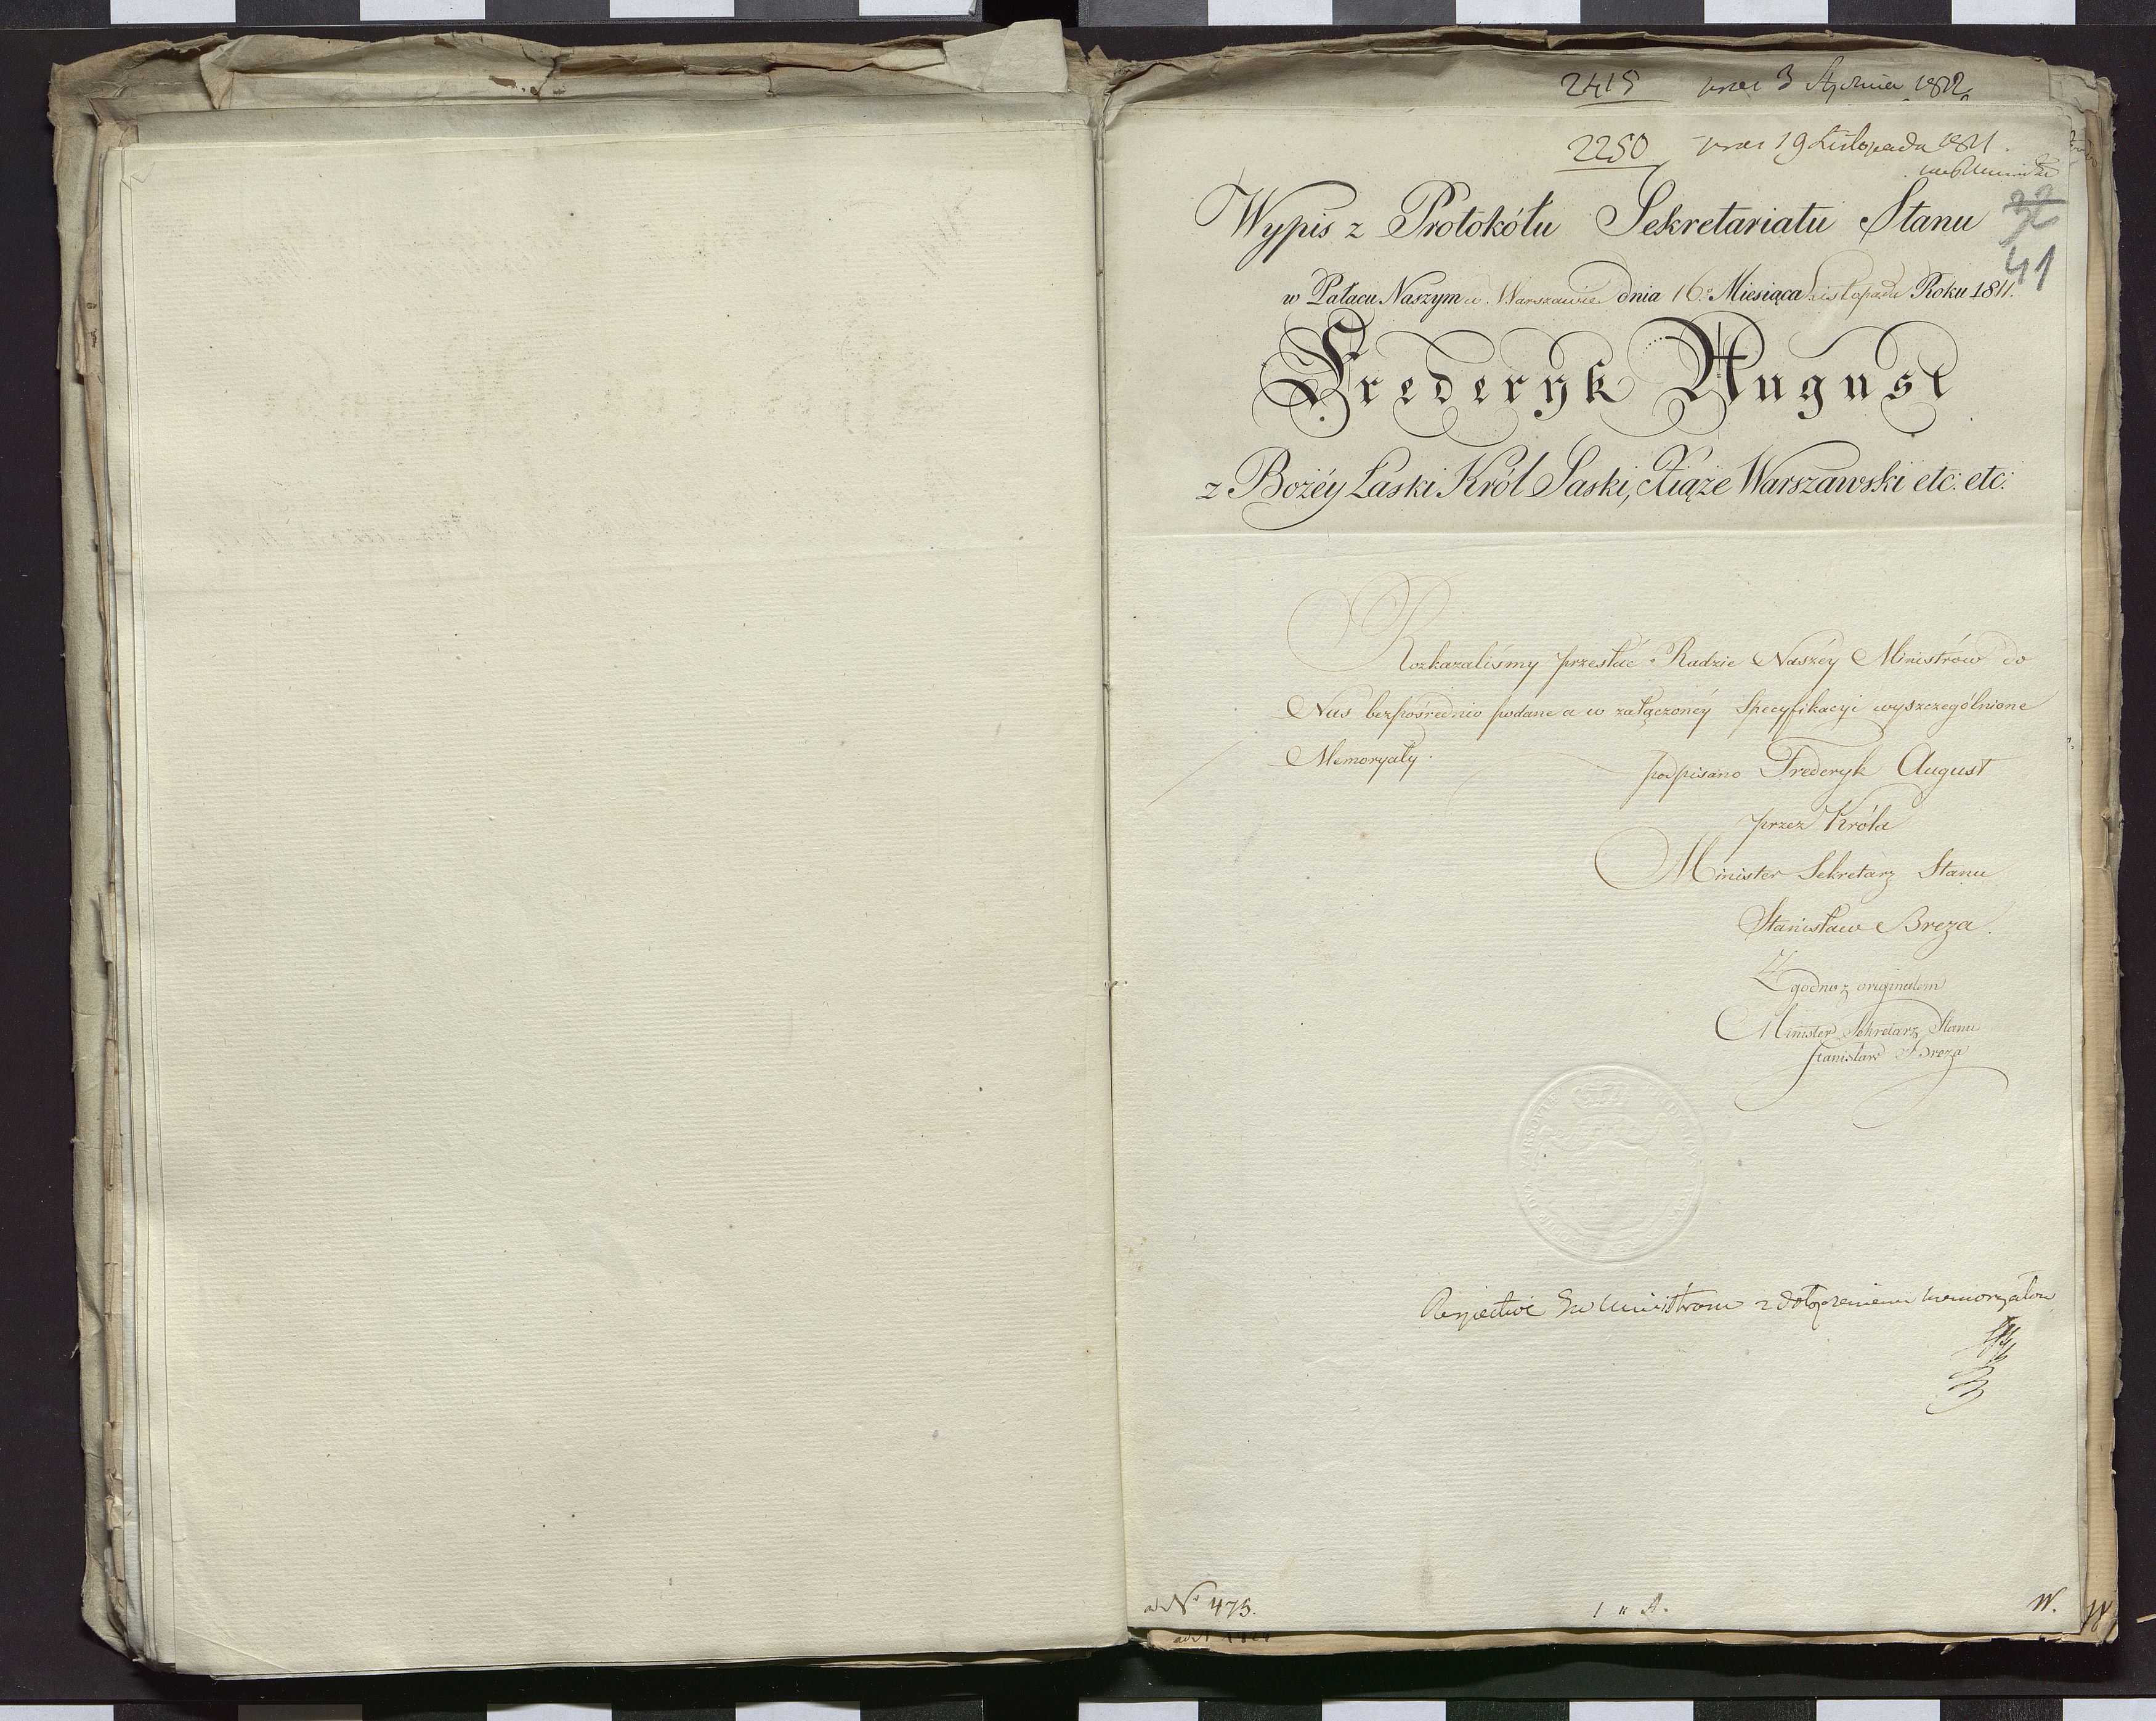 2415 prae: 3 Stycznia 1812.
2250 prae: 19 Listopada 1811.
Wypis z Protokółu Sekretariatu Stanu
32
41
w Pałacu Naszym w Warszawie dnia 16.º Miesiąca Listopada Roku 1811.
Frederyk August
z Bożéy Łaski Król Saski, Xiąże Warszawski etc. etc:
Rozkazaliśmy przesłać Radzie Naszéy Ministrów do
Nas bezpośrednio podane a w załączonéy Specyfikacyi wyszczególnione
Memoryały.
podpisano Frederyk August
przez Króla
Minister Sekretarz Stanu
Stanisław Breza.
Zgodno z originałem
Minister Sekretarz Stanu
Stanisław Breza
Respective Ministrom z dołączeniem memoryałow
ad Nº 475.
W.
W